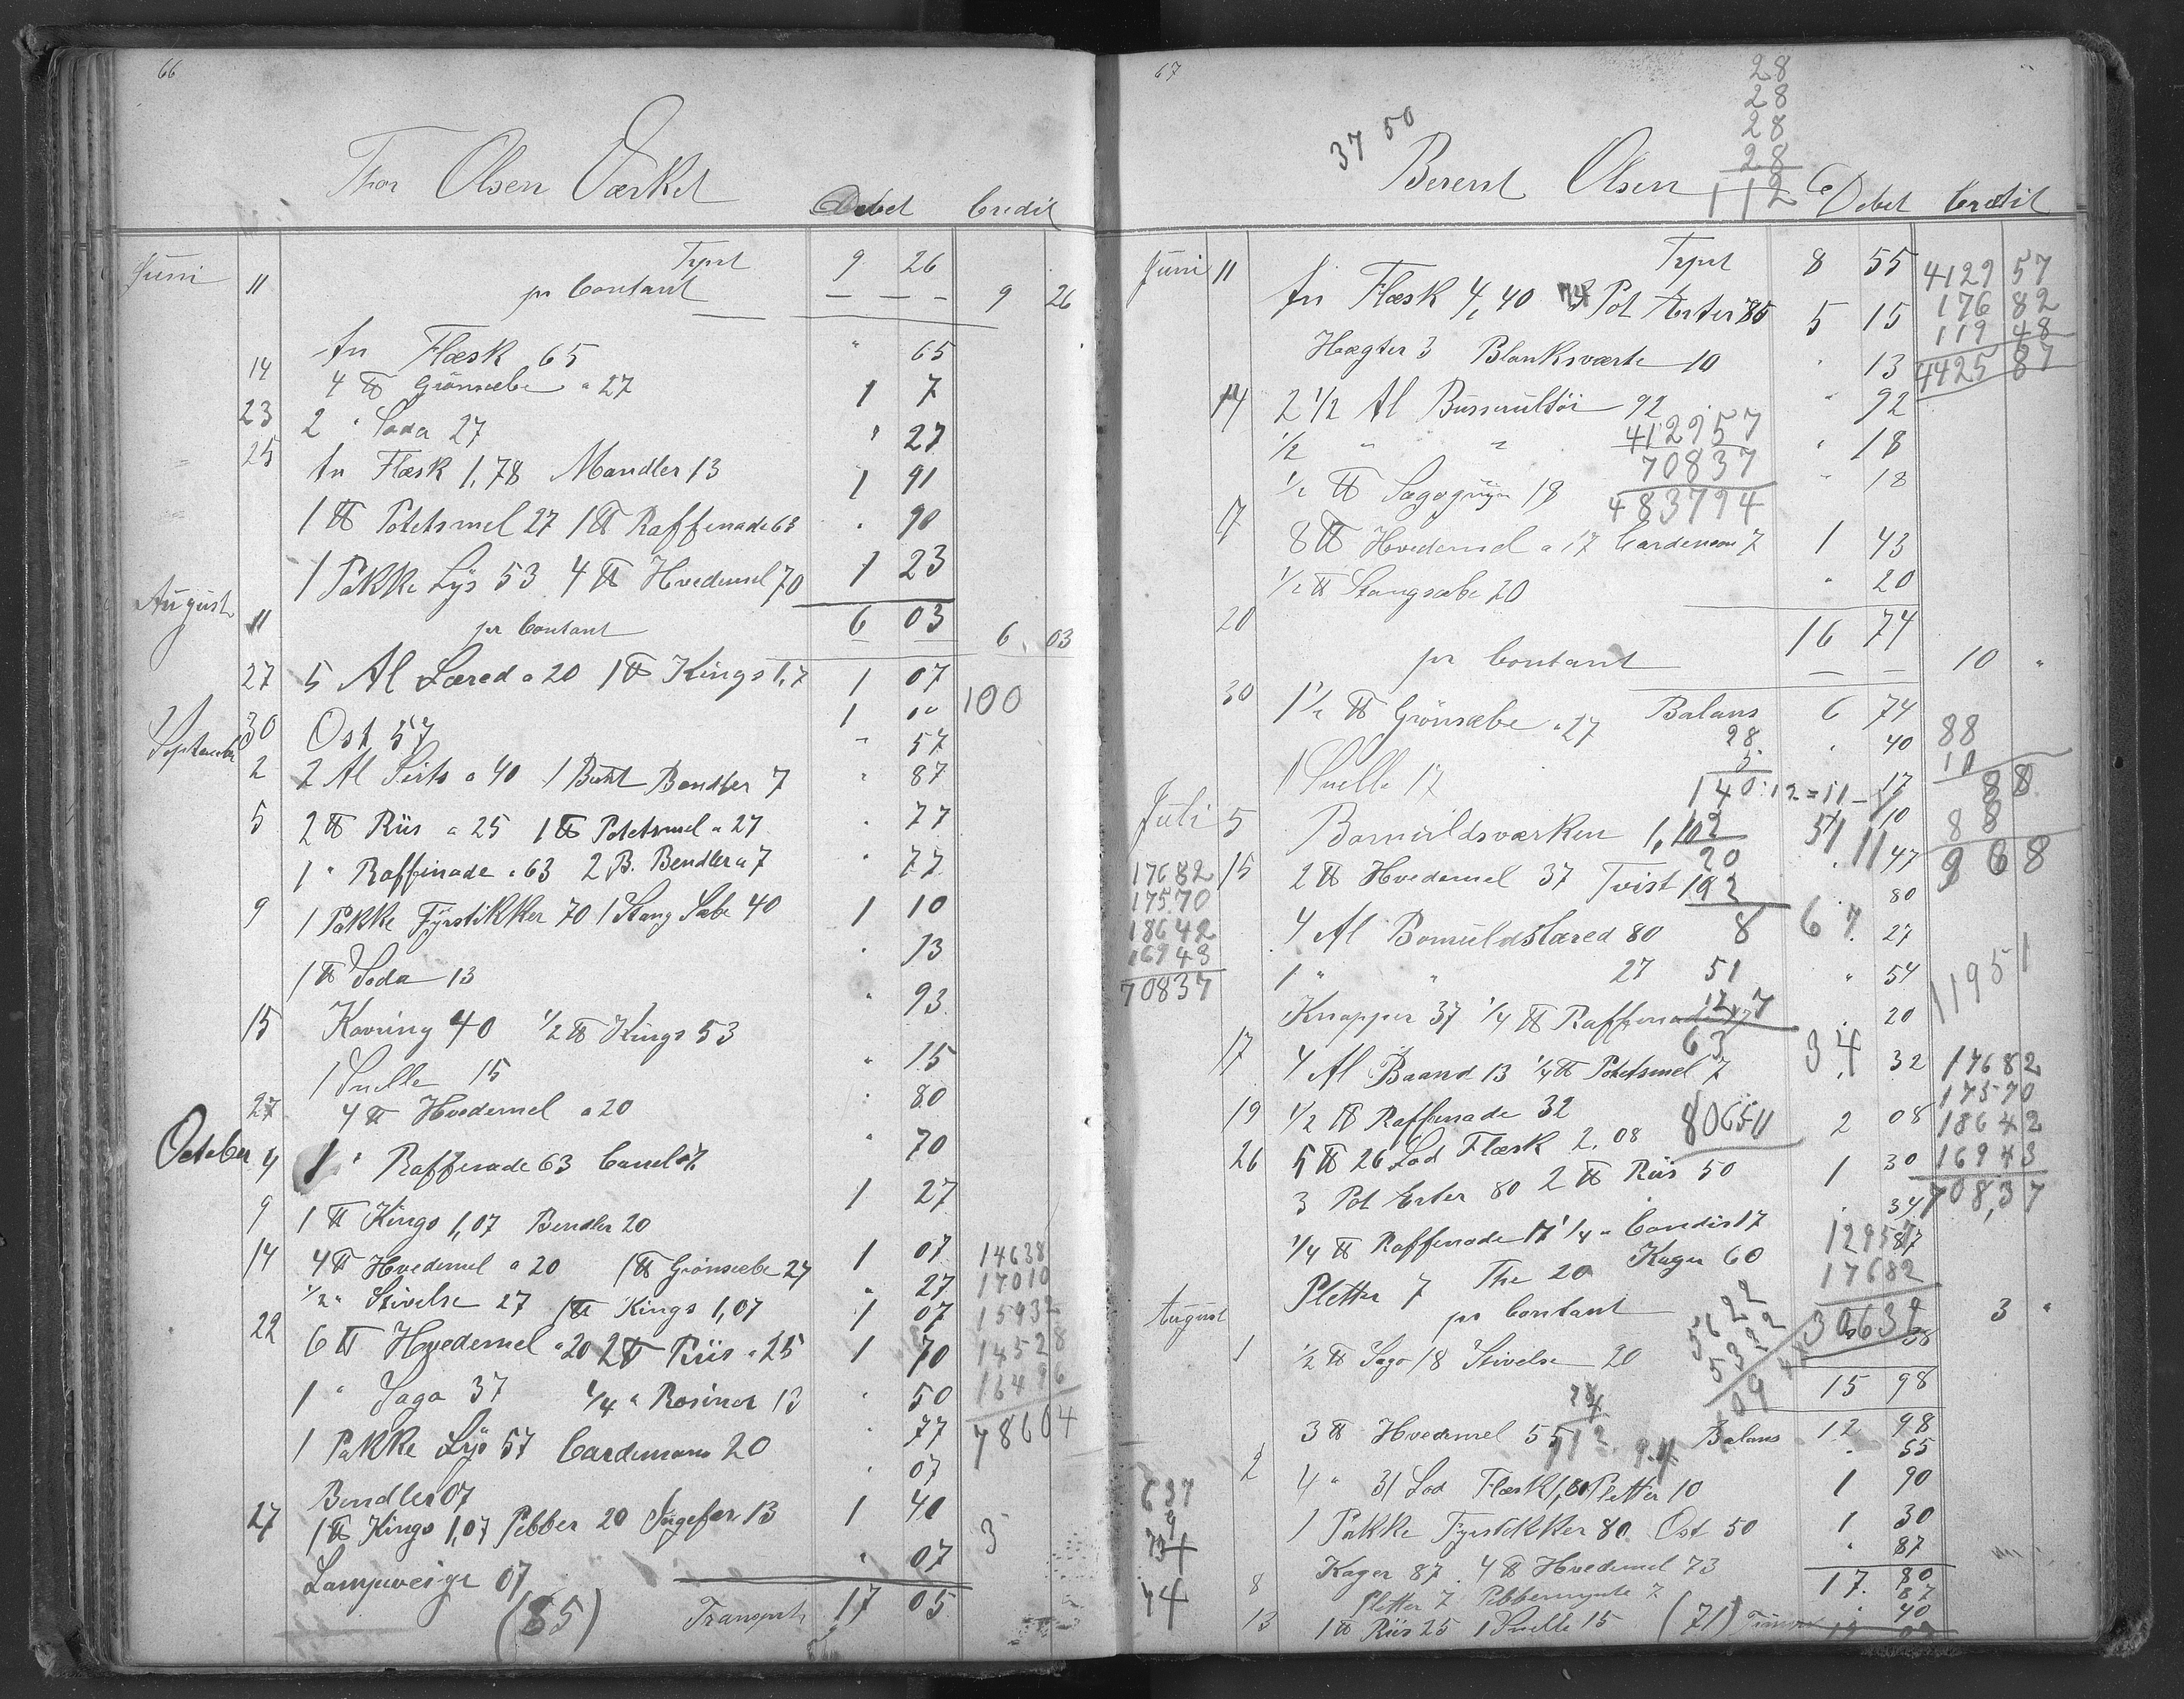 66
Thor Olsen Værket
Debet Credit
Juni 11 Trpst 9 26
pr Contant — — — 9 26
An Flæsk 65 " 65
14 4 ℔ Grönsæbe a 27 1 7
23 2 " Soda 27 " 27
25 An Flæsk 1,78 Mandler 13 1 91
1 ℔ Potetsmel 27 1 ℔ Raffenade 63 " 90
1 Pakke Lÿs 53 4 ℔ Hvedemel 70 1 23
August 11 6 03
pr Contant 6 03
27 5 Al Læred a 20 1 ℔ Kings 1,7 1 07
1 00 100
30 Ost 57 " 57
September 2 2 Al Sirts a 40 1 Bundt Bendler 7 " 87
5 2 ℔ Riis a 25 1 ℔ Potetsmel a 27 " 77
1 " Raffinade a 63 2 B. Bendler a 7 " 77
9 1 Pakke Fÿrstikker 70 1 Stang Sæbe 40 1 10
1 ℔ Soda 13 " 13
15 Kavring 40 1/2 ℔ Kings 53 " 93
1 Snelle 15 " 15
27 4 ℔ Hvedemel a 20 " 80
October 4 1 " Raffenade 63 Canel 7 " 70
9 1 ℔ Kings 1,07 Bendler 20 1 27
14 4 ℔ Hvedemel a 20 1 ℔ Grönsæbe 27 1 07
1/2 " Stivelse 27 1 ℔ Kings 1,07 " 27
1 07
22 6 ℔ Hvedemel a 20 2 ℔ Riis a 25 1 70
1 " Sago 37 1/4 " Rosiner 13 " 50
1 Pakke Lÿs 57 Cardemome 20 " 77
Bendler 07 " 07
27 1 ℔ Kings 1,07 Pebber 20 Ingefær 13 1 40
Lampeveige 07 " 07
(85) Transport 17 05
14638
17010
15932
14528
16496
78604
3
67
37 50
28
28
28
28
112
Berent Olsen
Debet Credit
Juni 11 Trpst 8 55
An Flæsk 4,40 Pot Erter 5 15
Hægter 3 Blanksværte 10 " 13
14 2 1/2 Al Busserultöi 92 " 92
1/2 " " " 18
1/2 ℔ Sagogryn 18 " 18
8 ℔ Hvedemel a 17 Cardemome 7 1 43
1/2 ℔ Stangsæbe 20 " 20
20 16 74
pr Contant — — 10 "
Balans 6 74
30 1 1/2 ℔ Grönsæbe a 27 " 40
1 Snelle 17 " 17
Juli 5 Bomuldsværken 10
15 2 ℔ Hvedemel 37 Tvist 47
4 Al Bomuldslæred 80 " 80
1 " " 27 " 27
Knapper 37 1/4 ℔ Raffenade " 54
17 4 Al Baand 13 1/4 ℔ Potetsmel 7 " 20
19 1/2 ℔ Raffenade 32 " 32
26 5 ℔ 26 Lod Flæsk 2,08 2 08
3 Pot Erter 80 2 ℔ Riis 50 1 30
1/4 ℔ Raffenade 17 1/4 " Candis 17 " 34
Pletter 7 The 20 Kager 60 87
August pr Contant 3 "
1 1/2 ℔ Sago 18 Stivelse 20 38
15 98
Balans 12 98
3 ℔ Hvedemel 55 " 55
2 4 " 31 Lod Flæsk Pletter 10 1 90
1 Pakke Fyrstikker 80 Ost 50 1 30
Kager 87 " 87
17 80
8 4 ℔ Hvedemel 73
Pletter 7 Pebbermynte 7 87
13 1 ℔ Riis 25 1 Snelle 15 " 40
(71)
4129 57
176 82
119 48
4425 87
412957
70837
483794
88
28
5
140:12=11
20
192
8
67
51
63
34
11951
17682
17570
18642
16943
70837
17682
17570
18642
16943
708,37
80651
17682
30639
637
9
74